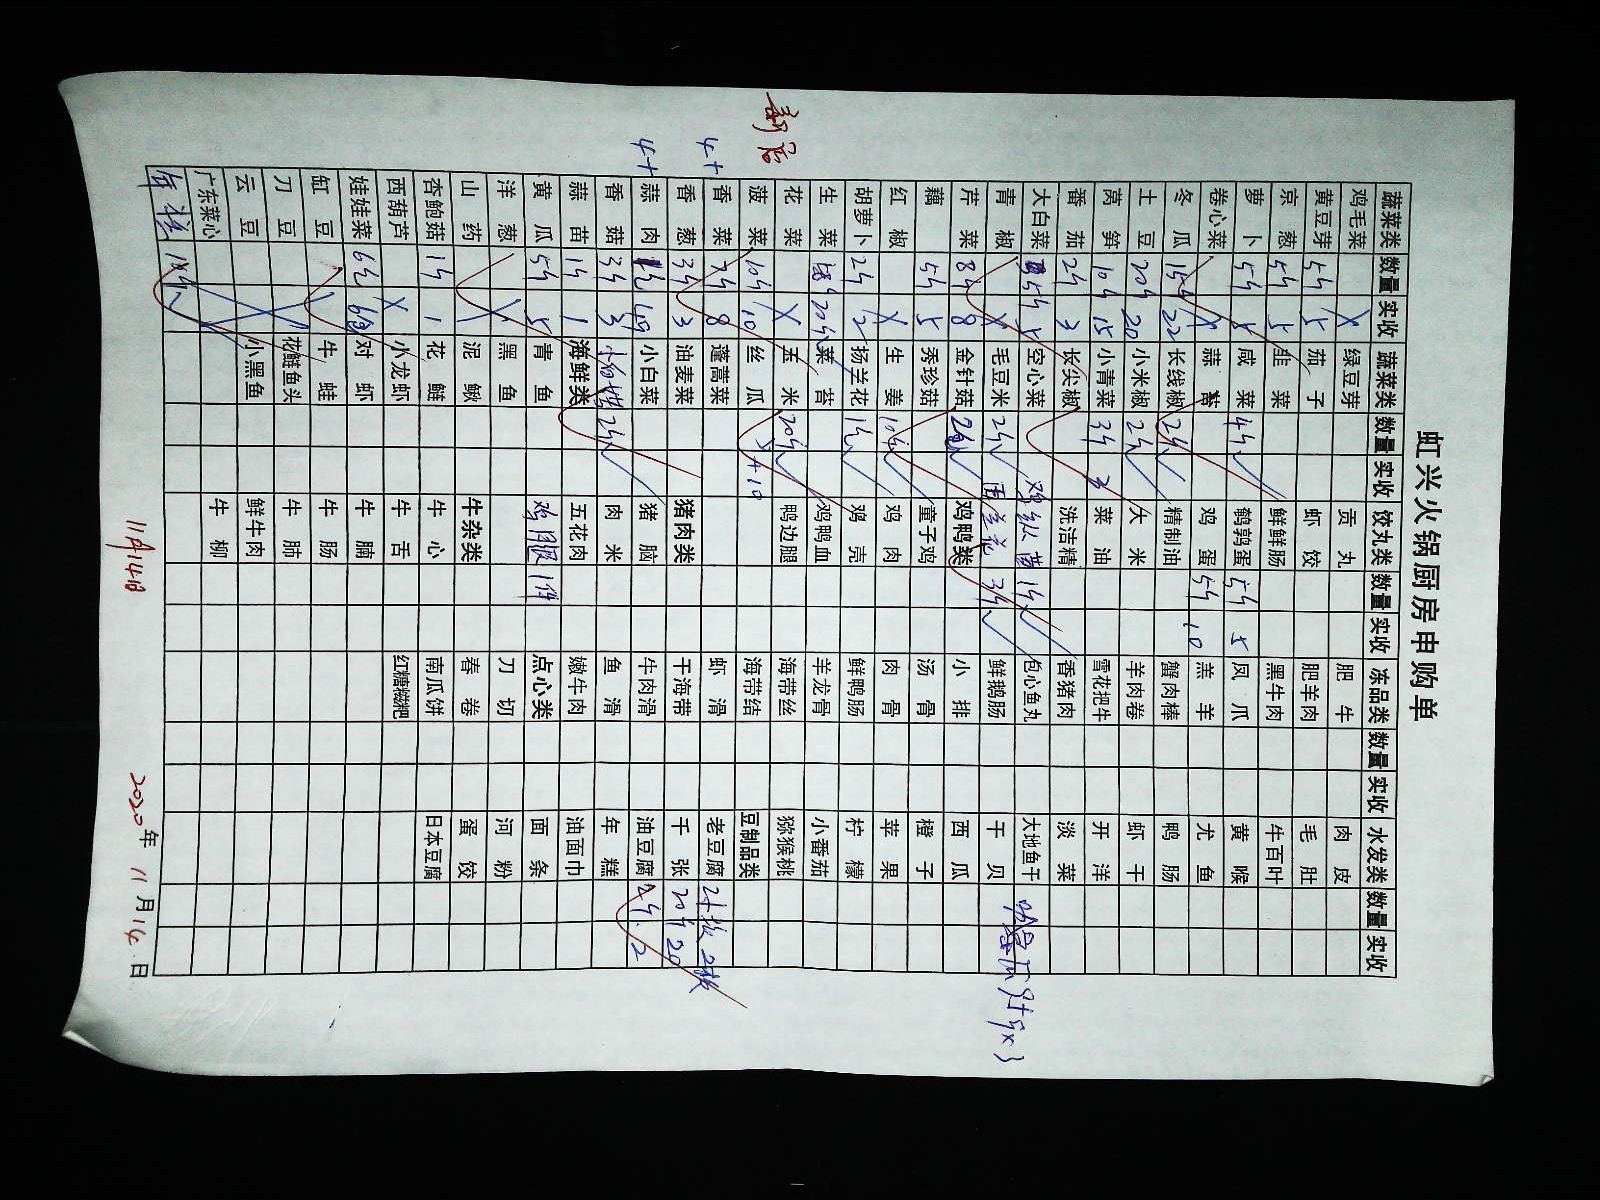 虹兴火锅厨房申购单
蔬菜类 数量 实收 蔬菜类 数量 实收 饺丸类 数量 实收 冻品类 数量 实收 水发类 数量 实收
鸡毛菜 绿豆芽 贡丸 肥牛 肉皮
黄豆芽 5斤 5 茄子 虾饺 肥羊肉 毛肚
京葱 5斤 5 韭菜 鲜鲜肠 黑牛肉 牛百叶
萝卜 5斤 咸菜 4斤 鹌鹑蛋 5斤 5 凤爪 黄喉
卷心菜 蒜苔 鸡蛋 5斤 10 羔羊 尤鱼
冬瓜 15斤 22 长线椒 2斤 精制油 蟹肉棒 鸭肠
土豆 20斤 20 小米椒 2斤 大米 羊肉卷 虾干
莴笋 10斤 15 小青菜 3斤 3 菜油 雪花把牛 开洋
番茄 2斤 3 长尖椒 洗洁精 香猪肉 淡菜
大白菜 5斤 空心菜 鸡纵菌 1斤 包心鱼丸 大地鱼干
青椒 毛豆米 2斤 3斤 鲜鹅肠 干贝
芹菜 8斤 8 金针菇 鸡鸭类 小排 西瓜
藕 5斤 5 秀珍菇 童子鸡 汤骨 橙子
红椒 生姜 10斤 鸡肉 肉骨 苹果
胡萝卜 2斤 2 扬兰花 1斤 鸡壳 鲜鸭肠 柠檬
生菜 20斤 菜苔 鸡鸭血 羊龙骨 小番茄
花菜 玉米 20斤 鸭边腿 海带丝 猕猴桃
菠菜 10斤 10 丝瓜 5+10 海带结 豆制品类
香菜 7斤 8 蓬蒿菜 虾滑 老豆腐 2板
香葱 3斤 3 油麦菜 猪肉类 干海带 千张 20斤 20
蒜肉 小白菜 猪脑 牛肉滑 油豆腐 2斤 2
香菇 3斤 3 2斤 肉米 鱼滑 年糕
蒜苗 1斤 1 海鲜类 五花肉 嫩牛肉 油面巾
黄瓜 5斤 5 青鱼 鸡腿 1件 点心类 面条
洋葱 黑鱼 刀切 河粉
山药 泥鳅 牛杂类 春卷 蛋饺
杏鲍菇 1斤 1 花鲢 牛心 南瓜饼 日本豆腐
西葫芦 小龙虾 牛舌 红糖糍粑
娃娃菜 6包 6包 对虾 牛腩
缸豆 牛蛙 牛肠
刀豆 花鲢鱼头 牛肺
云豆 小黑鱼 鲜牛肉
广东菜心 牛柳
11月14日
2020年11月14日